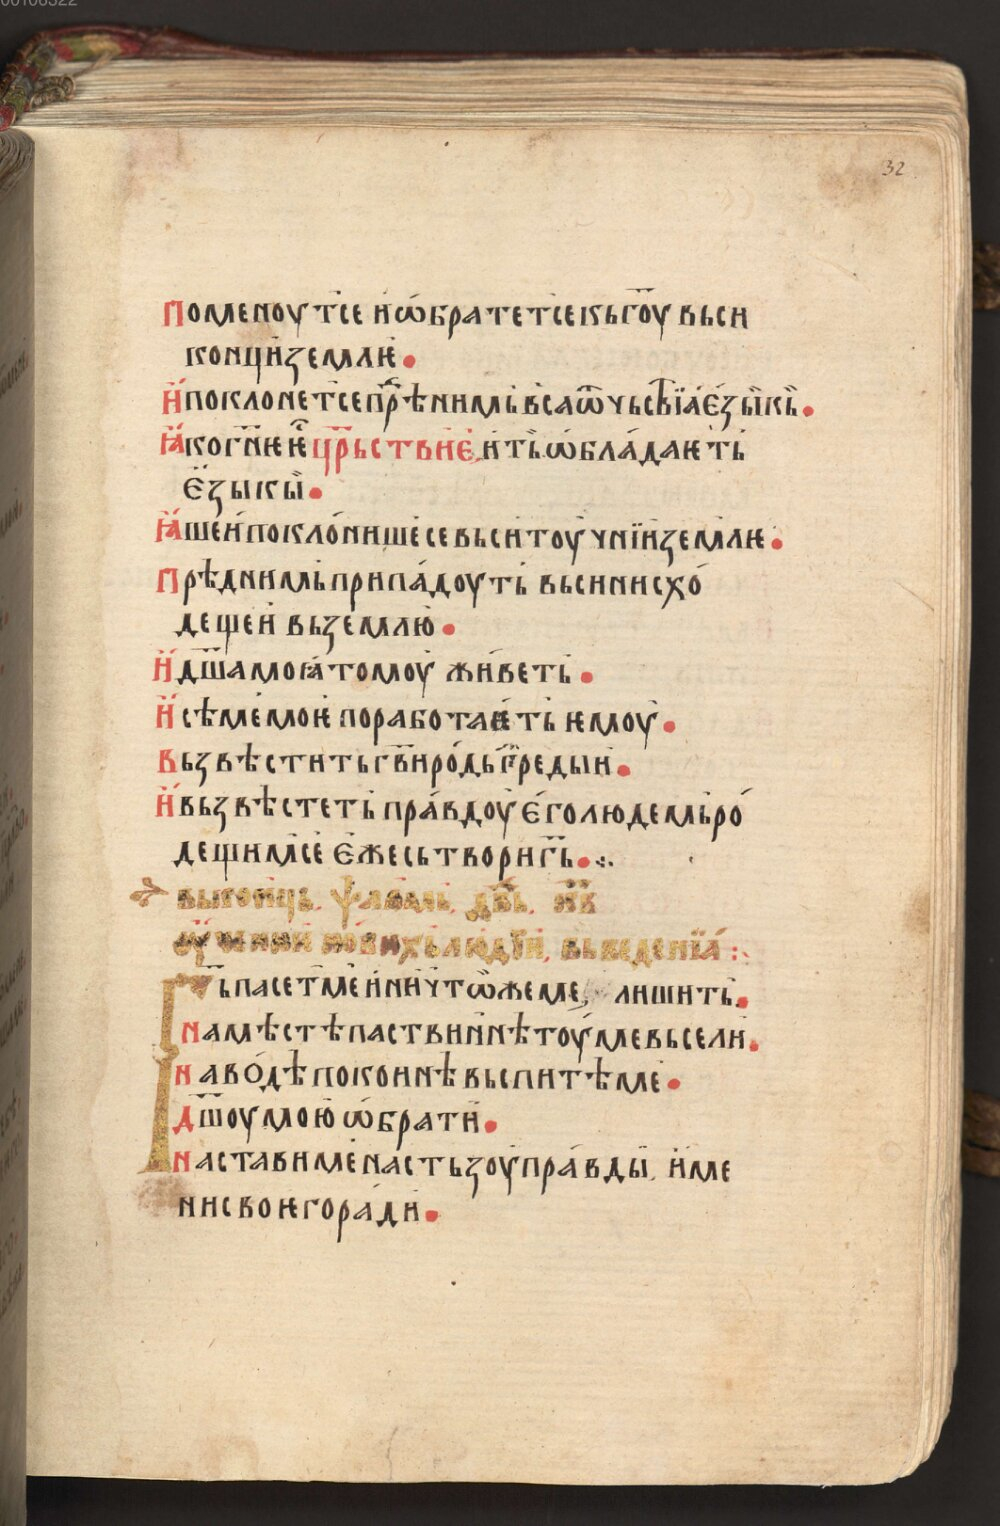 00106322
32
Поменоут се и ѡбратет се кь гоу вьси
конци землѥ.
И поклонет се прѣд нимь вса ѿчьствїа єзыкь.
Ꙗко гнѥ ѥ црьствиѥ, и ть ѡбладаѥть
єзыкы.
Ꙗше и поклонише се вьси тоучнїи землѥ.
Прѣд нимь припадоуть вьси нисхо
дещеи вь землю.
И дша моꙗ томоу живеть.
И сѣме моѥ поработаѥть ѥмоу.
Вьзвѣстить гви родь гредыи.
И вьзвѣстеть правдоу єго людемь ро
дещим се єже сьтвори гь.
вь конць, ѱаломь, двь, кв
оучении новихь людїи, вьведенїа :
Гь пасет ме и ничтоже ме лишить.
На мѣстѣ паствиннѣ тоу ме всели.
На водѣ покоинѣ вьспитѣ ме.
Дшоу мою ѡбрати.
Настави ме на стьзоу правды, име
ни своѥго ради.